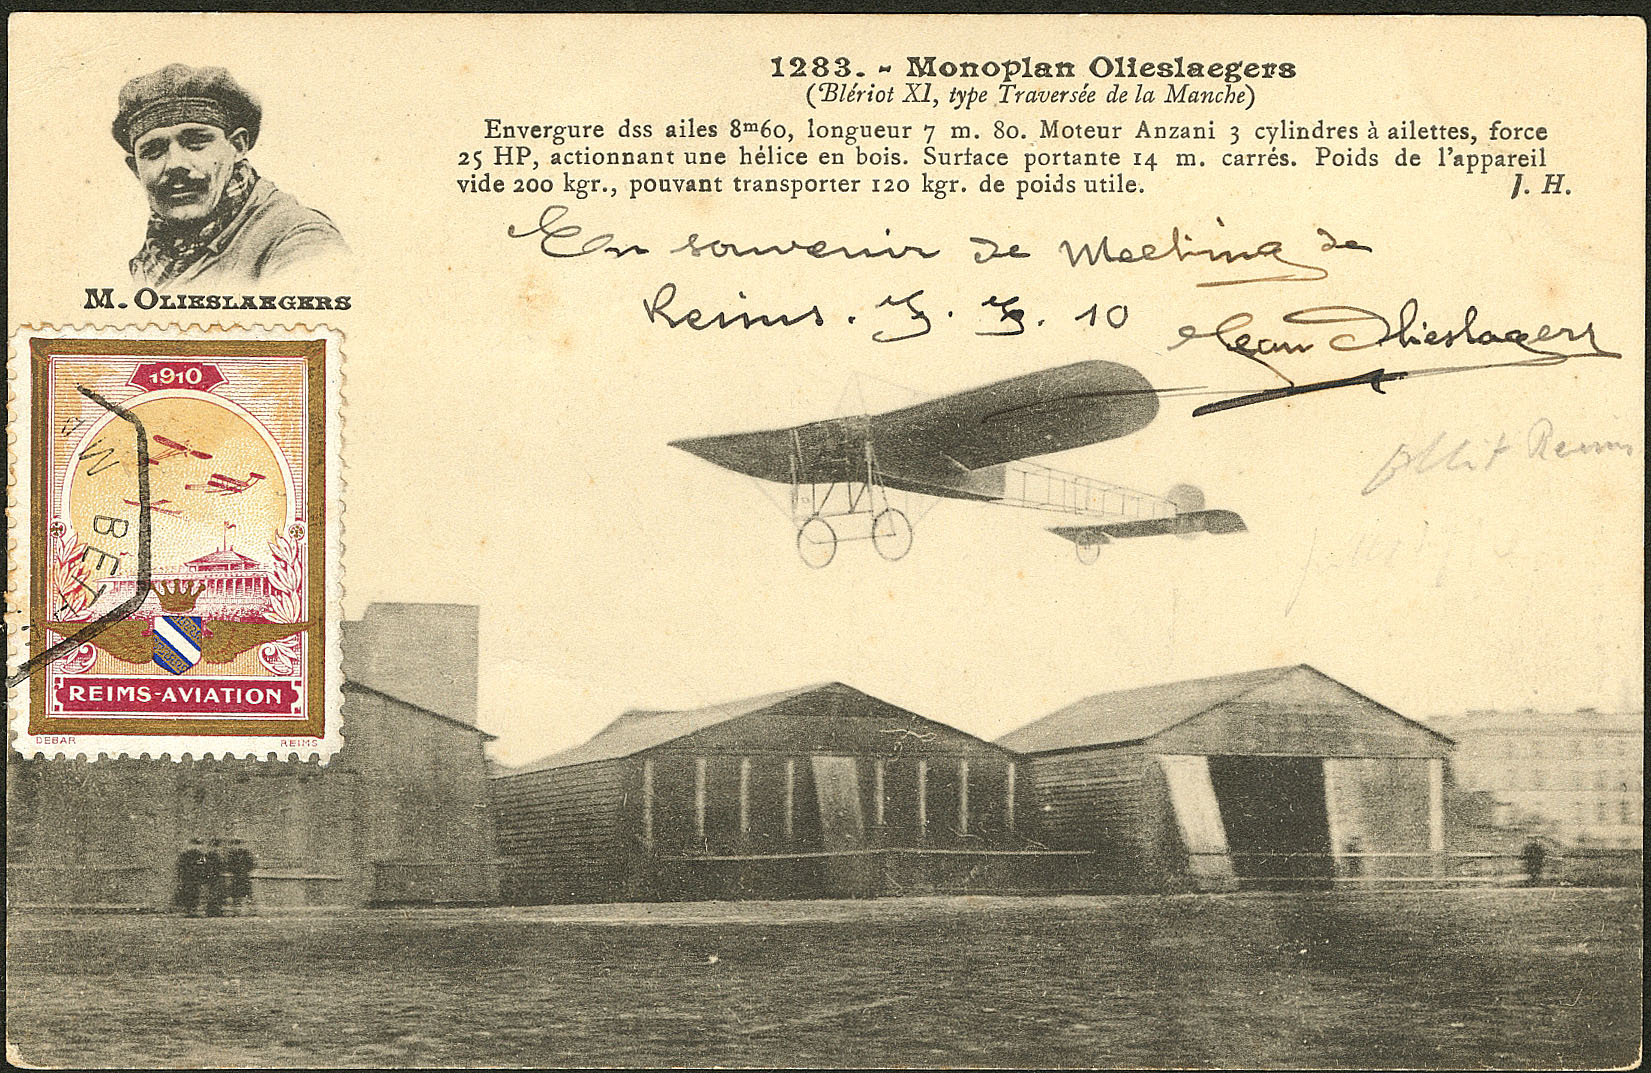 1283. - Monoplan Olieslaegers
(Blériot XI, type Traversée de la Manche)
Envergure dss ailes 8ᵐ60, longueur 7 m. 80. Moteur Anzani 3 cylindres à ailettes, force
25 HP, actionnant une hélice en bois. Surface portante 14 m. carrés. Poids de l'appareil
vide 200 kgr., pouvant transporter 120 kgr. de poids utile.
J. H.
En souvenir de Meeting de
Reims. 3. 3. 10
Jean Olieslagers
M. OLIESLAEGERS
1910
REIMS-AVIATION
DEBAR
REIMS
Reims